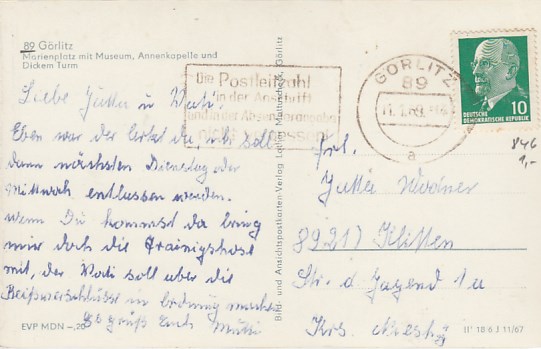 89 Görlitz
Marienplatz mit Museum, Annenkapelle und
Dicken Turm
Liebe Jutta u. Vati.
Eben war der Arzt da, ich soll
dann nächsten Dienstag oder
Mittwoch entlassen werden.
Wenn Du kommst da bring
mir doch die Trainigshose
mit, der Vati soll aber die
Reißverschlüsse in Ordnung machen
Es grüßt Euch Mutti
EVP MDN -,20
Bild- und Ansichtspostkarten-Verlag Lothar Görlitz
Die Postleitzahl
in der Anschrift
und in der Absenderangabe
nicht vergessen!
GÖRLITZ
89
11.1.69
a
10
DEUTSCHE
DEMOKRATISCHE REPUBLIK
846
1,-
Frl.
Jutta
89217 Klitten
Str. d Jugend 1a
Krs. Niesky
II' 18 6 J 11/67